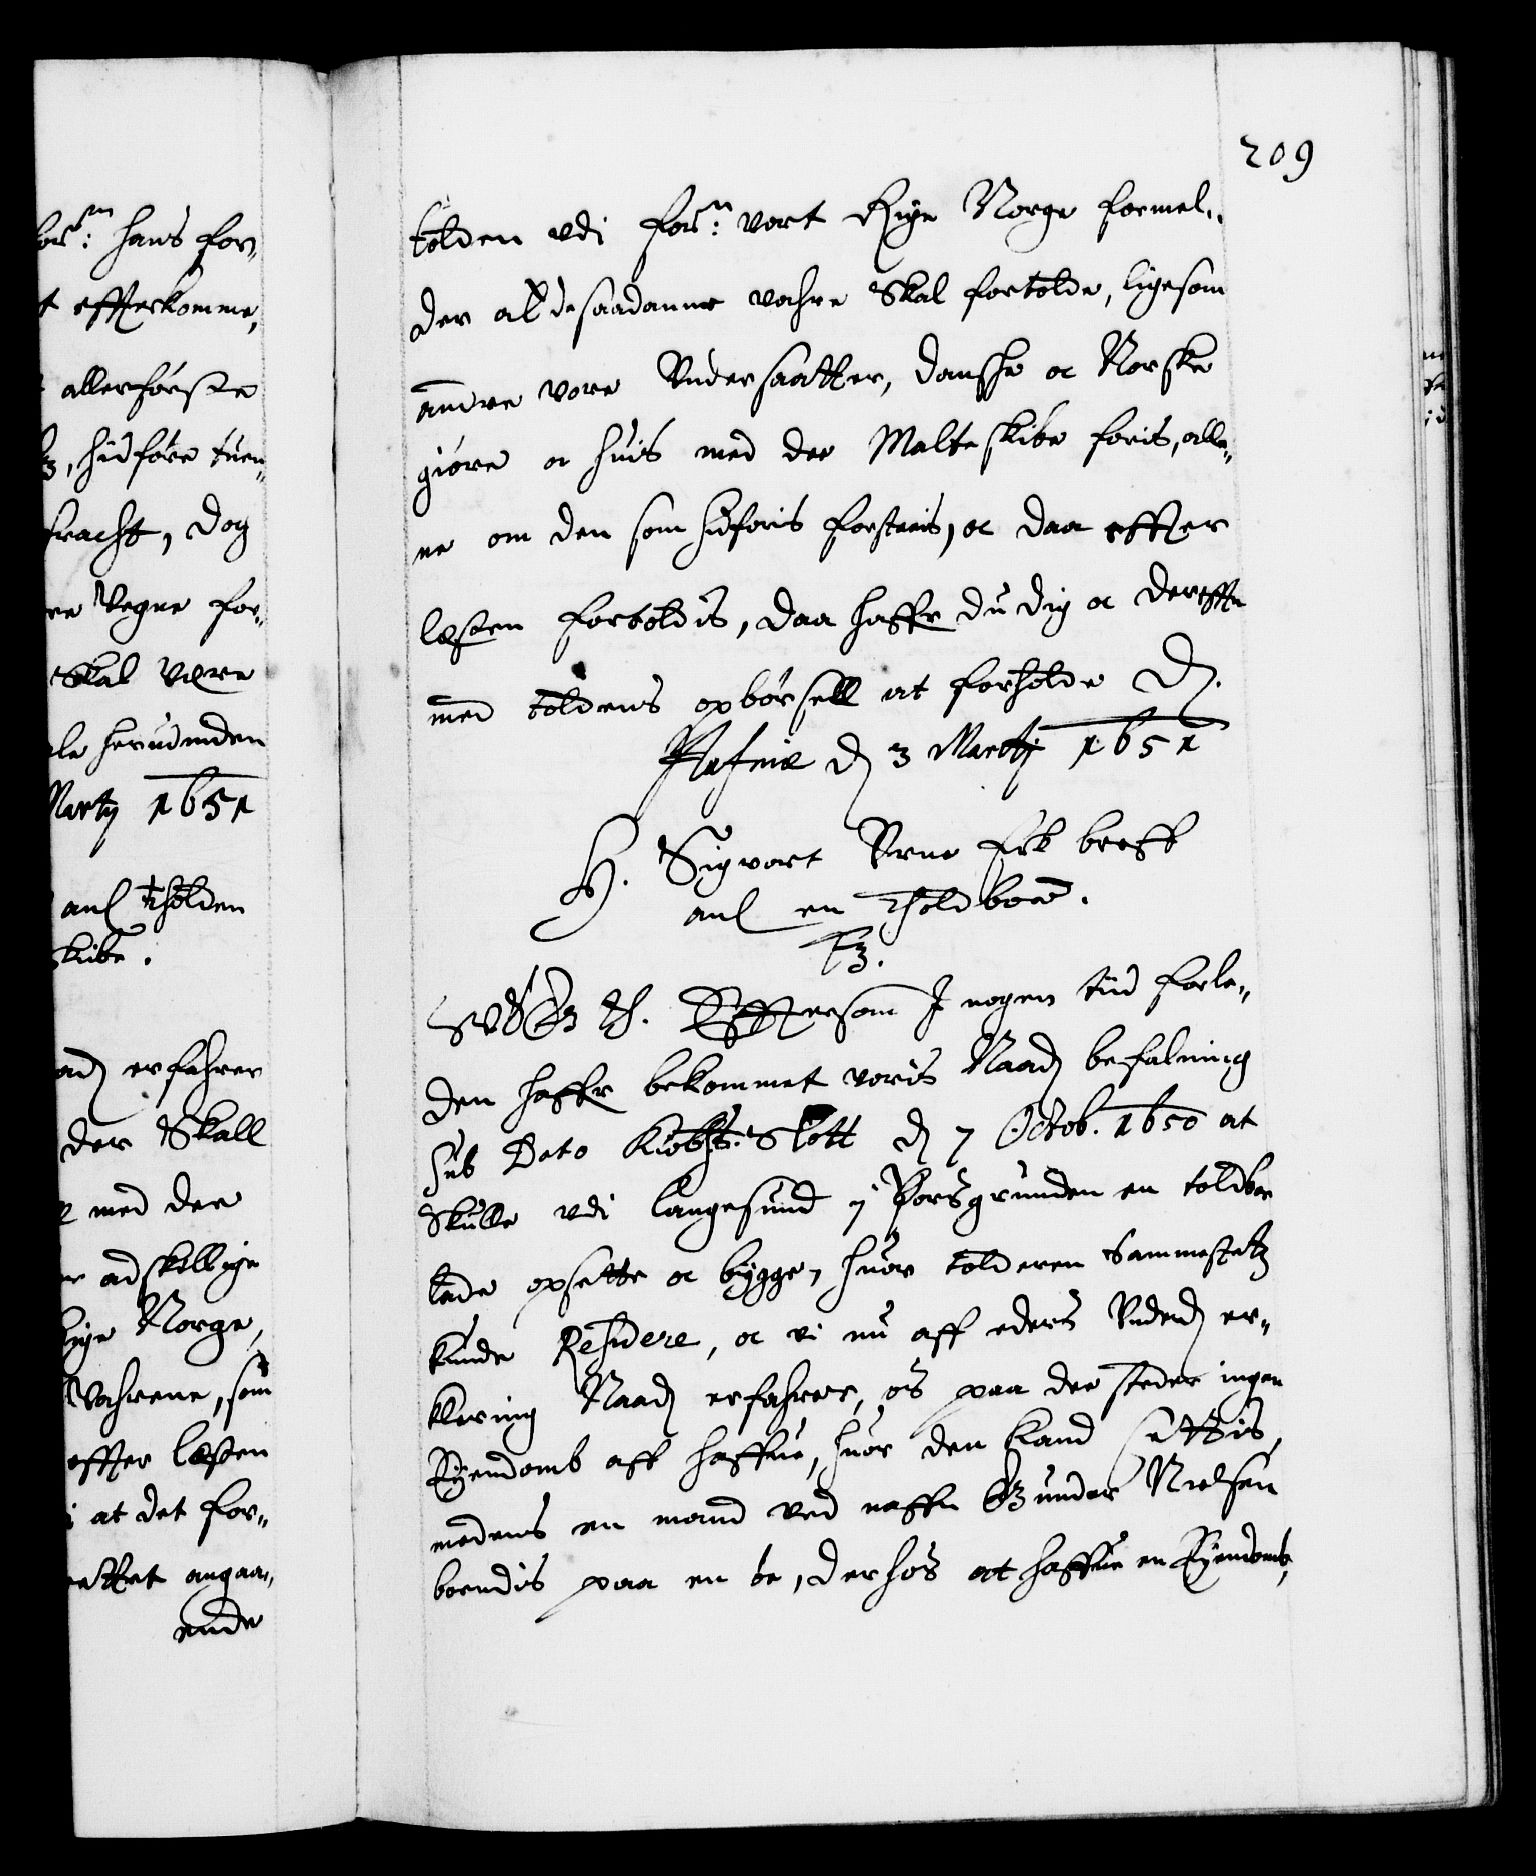 209
tolden udi forⁿ: vort Rige Norge formel„
der at de saadanne vahre Skal fortolde, ligesom
andre vore Undersaatter, Danske oc Norske
giøre oc huis med de Malte skibe føris, alle„
ne om den som hidføris forstaais, oc daa effter
læsten fortoldis, daa haffr du dig oc dereffter
med toldens opbørsell at forholde D.
Hafniæ D 3 Martij 1651
H. Sigvort Urne fik breff
anl en Tholdboed.
F3.
Effttersom I nogen tiid forle„
den haffr bekommet voris Naad befalning
sub Dato Kiøbh: Slott D 7 Octob. 1650 at
Skulle udi Langesund i Porsgrunden en toldboe
lade opsette oc bygge, huor tolderen Sammestetz
kunde Residere, oc vi nu aff eders Underd er„
klering Naad erfahrer, os paa de steder ingen
Eyendomb att haffue, huor den kand settis,
medens en mand ved naffn Gunder Nielsen
boendis paa en øe, derhos at haffue en Eyendomb,
forᵐ: hans for„
t effterkomme,
allerførste
, hidføre tuen„
fracht, dog
re Vegne for„
Skal være
le herudinden
Martij 1651
anl tholden
skibe.
ad erfahrer
der Skall
med de
adskillige
Rige Norge,
Vahrene, som
effter læsten
at det for„
rettet angaa„
ende